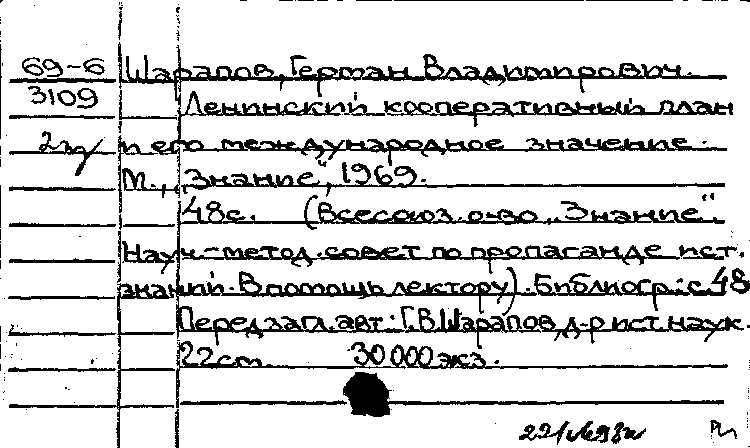 69-6 Шарапов, Герман Владимирович.
3109 Ленинский кооперативный план
и его международное значение.
М., „Знание", 1969.
48с. (Всесоюз. о-во „Знание".
Науч.-метод. совет по пропаганде ист.
знаний. В помощь лектору). Библиогр.: с. 48
Перед загл. авт.: Г.В. Шарапов, д-р ист. наук.
22см. 30000 экз.